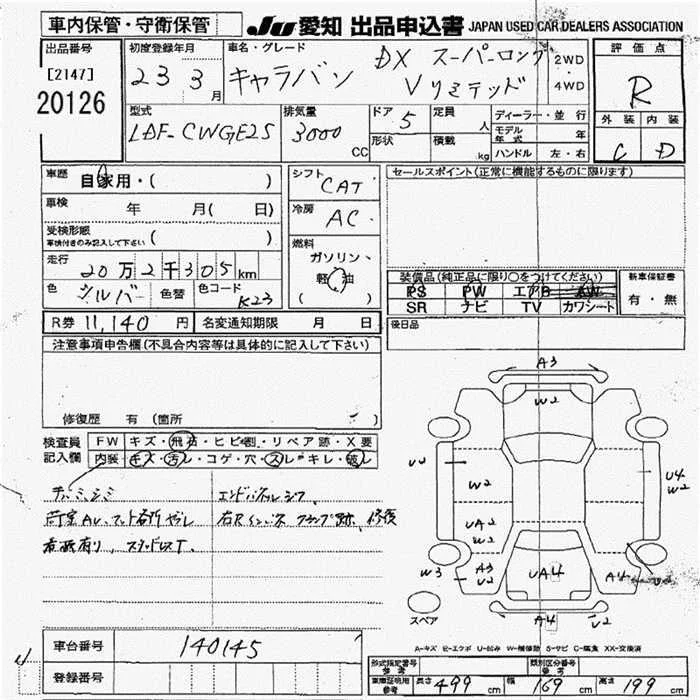 車内保管・守衛保管 JU 愛知 出品申込書 JAPAN USED CAR DEALERS ASSOCIATION
出品番号 初度登録年月 車名・グレード 評価点
[2147] 23 3月 キャラバン DX スーパーロング 2WD
20126 Vリミテッド 4WD R
型式 排気量 ドア 定員 人 ディーラー・並行 外装 内装
LDF-CWGE25 3000 CC 5 形状 積載 kg モデル年式 年
ハンドル 左・右 C D
車歴 自家用・( ) シフト CAT セールスポイント(正常に機能するものに限ります)
車検 年 月( 日) 冷房 AC
受検形態
車検付きのみ記入して下さい ( ) 燃料
走行 20万2千305km ガソリン、
色 シルバー 色替 色コード K23 軽油 ( )
装備品(純正品に限り○をつけてください) 新車保証書
PS PW エアB AW 有・無
SR ナビ TV カワシート
R券 11,140 円 名変通知期限 月 日 後日品
注意事項申告欄(不具合内容等は具体的に記入して下さい)
修復歴 有(箇所
検査員 FW キズ・飛石・ヒビ割・リペア跡・X要
記入欄 内装・キズ・汚レ・コゲ・穴・スレ・キレ・破レ
A3
W2
W2
U4
W2
UA2
W2
W3
A3
U2
UA4
A4
A4
U2
スペア
A-キズ E-エクボ U-凹み W-補修跡 S-サビ C-腐食 XX-交換済
車台番号 140145
登録番号
形式指定番号 参考 類別区分番号 参考
車庫証明用 参考 長さ 499 cm 幅 169 cm 高さ 199 cm